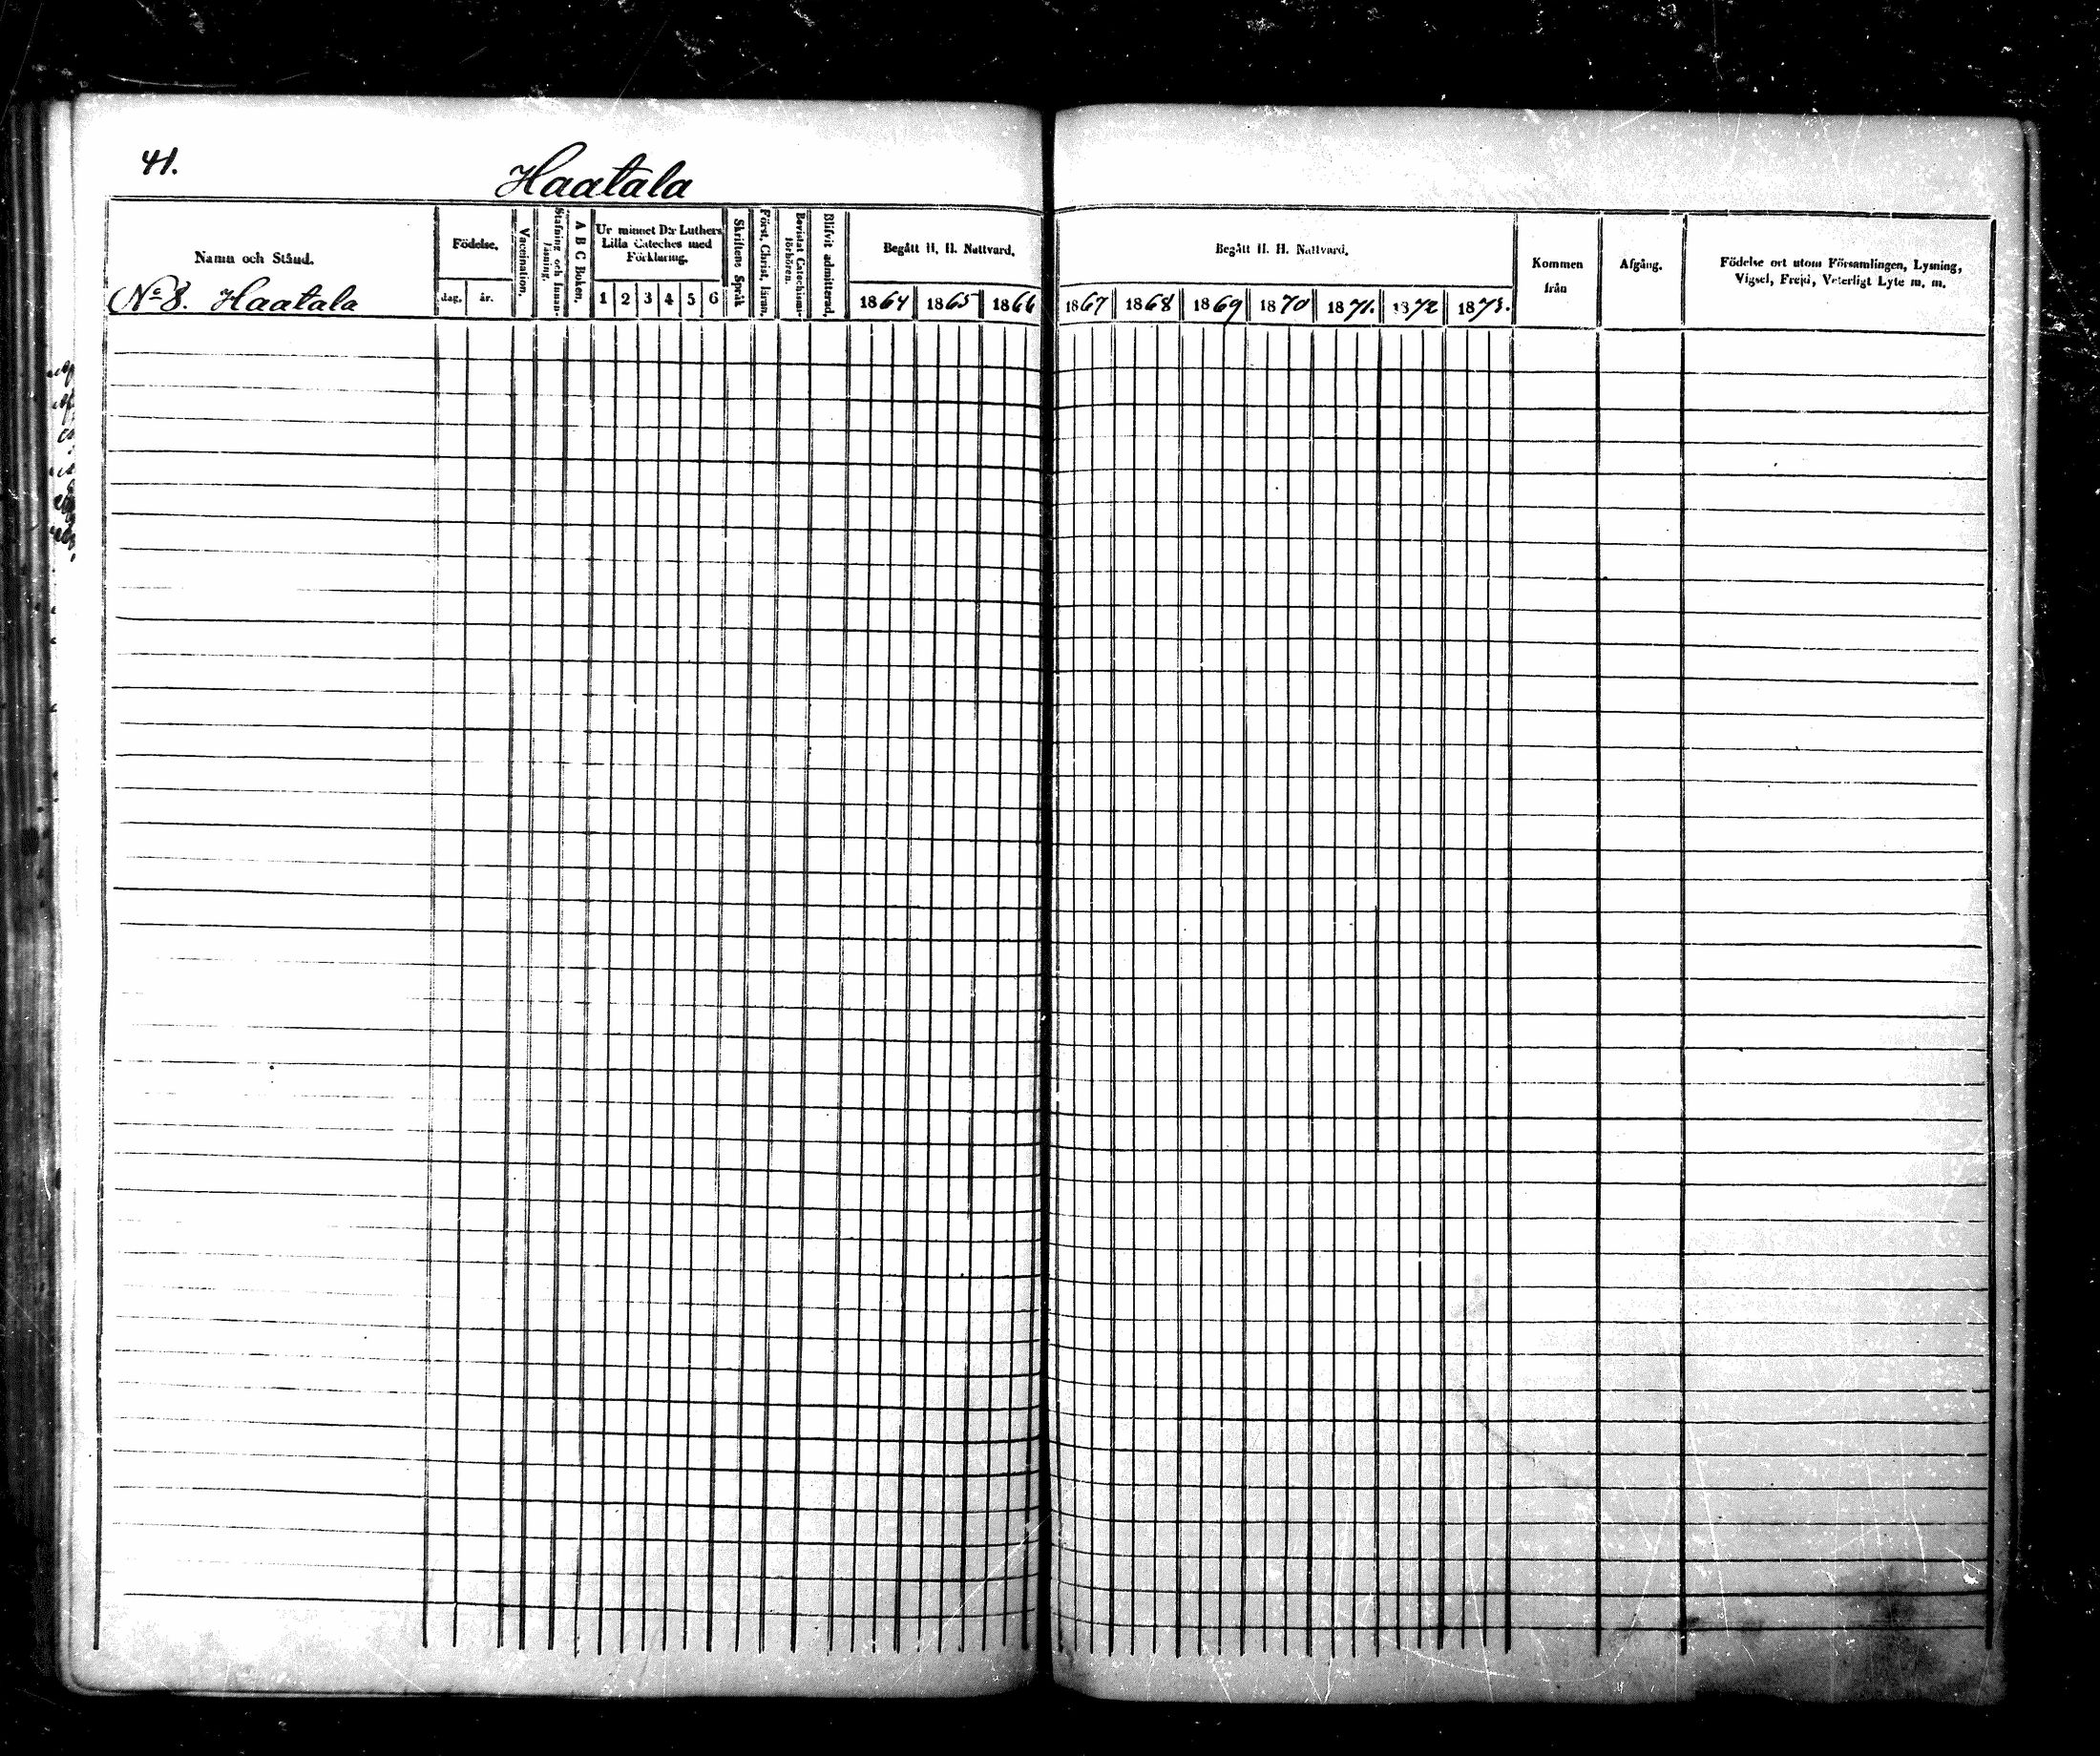 41.
Haatala
Namn och Stånd.
No 8. Haatala
Födelse.
dag. år.
Vaccination.
Stafning och Innan-
läsning.
A B C Boken.
Ur minnet D:r Luthers
Lilla Cateches med
Förklaring.
1 2 3 4 5 6
Skriftens Språk
Först. Christ. läran.
Bevistat Catechismi-
förhören.
Blifvit admitterad.
Begått H. H. Nattvard.
1864 1865 1866
Begått H. H. Nattvard.
1867 1868 1869 1870 1871. 1872 1873.
Kommen
från
Afgång.
Födelse ort utom Församlingen, Lysning,
Vigsel, Frejd, Veterligt Lyte m. m.